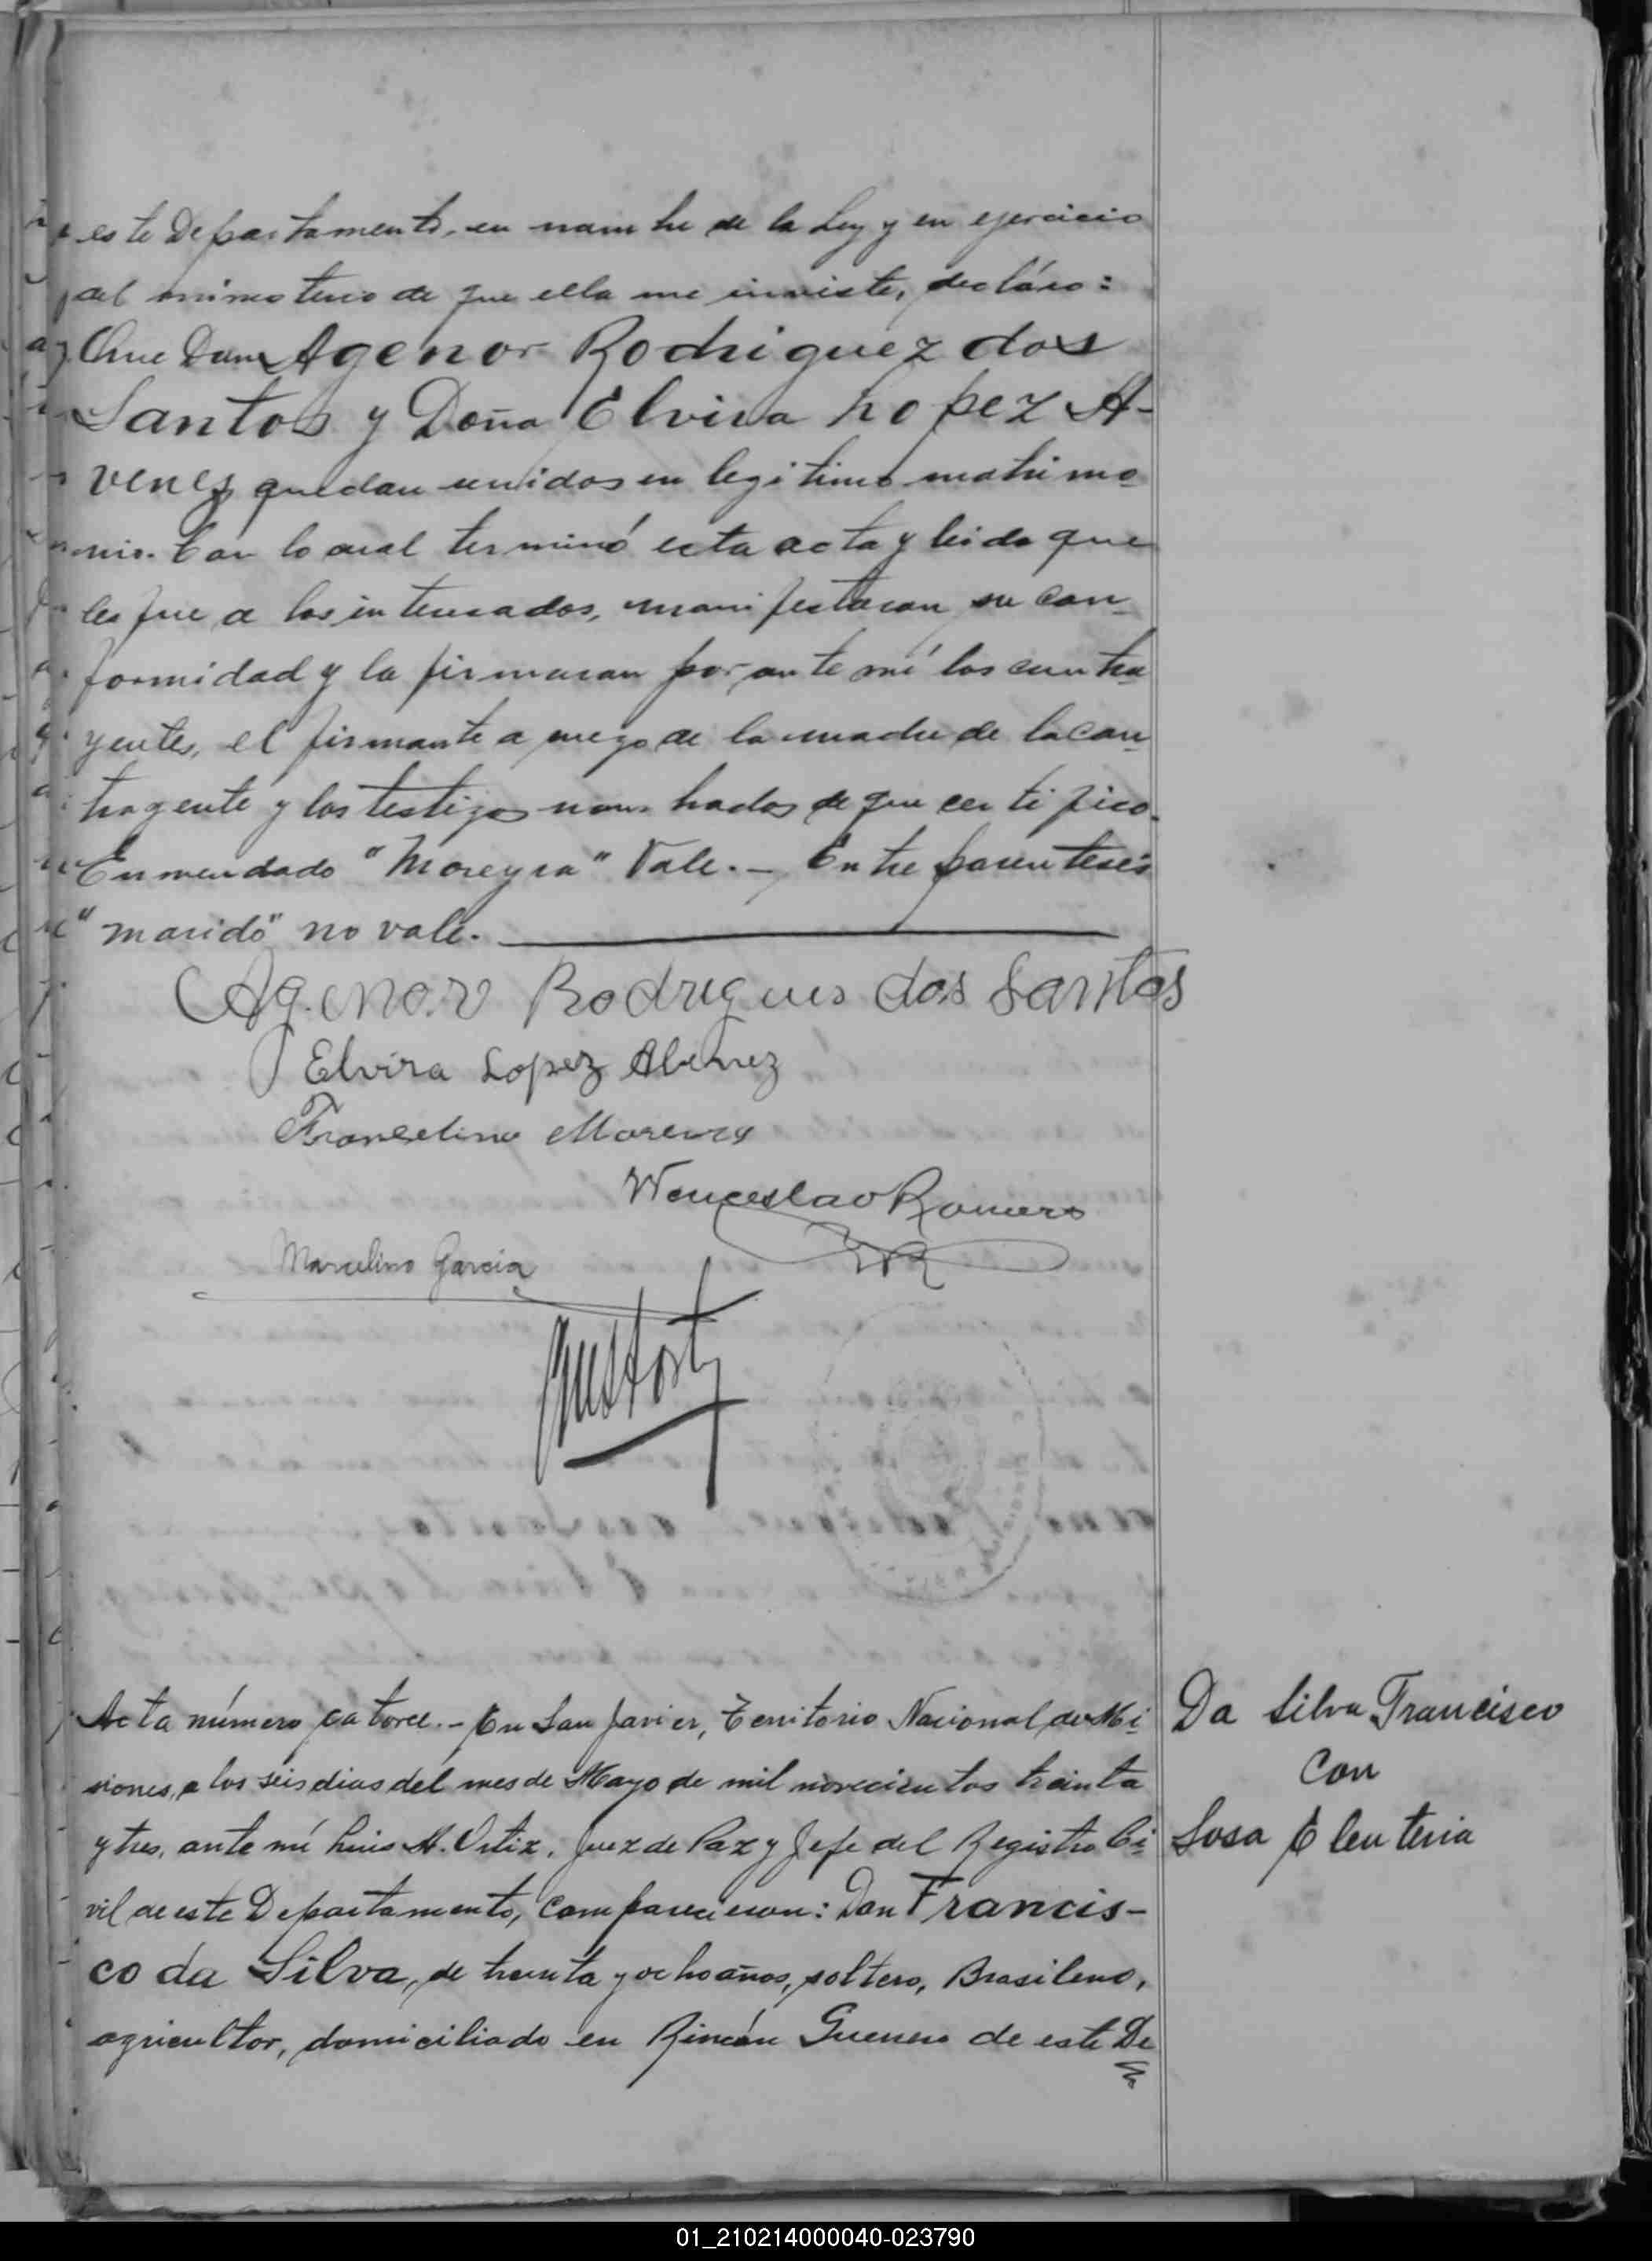 este Departamento, en nombre de la Ley y en ejercicio
del ministerio de que ella me inviste, decláro:
Que Don Agenor Rodriguez dos
Santos y Doña Elvira Lopez A-
venez quedan unidos en legitimo matrimo
nio. Con lo cual terminó esta acta y leida que
les fue a los interesados, manifestaron su con
formidad y la firmaron por ante mí los contra
yentes, el firmante a ruego de la madre de la con
trayente y los testigos nombrados de que certifico.
Enmendado "Moreyra" Vale.- Entre parentesis
"marido" no vale.
Agenor Rodrigues dos Santos
Elvira Lopez Abenez
Francelino Moreira
Wenceslao Romero
WR
Marcelino Garcia
Acta número catorce.- En San Javier, Territorio Nacional de Mi
siones, a los seis dias del mes de Mayo de mil novecientos treinta
y tres, ante mí Luis A. Ortiz, Juez de Paz y Jefe del Registro Ci
vil de este Departamento, comparecieron: Don Francis-
co da Silva, de treinta y ocho años, soltero, Brasileno,
agricultor, domiciliado en Rincón Guerrero de este De
Da Silva Francisco
Con
Sosa Eleuteria
01_210214000040-023790